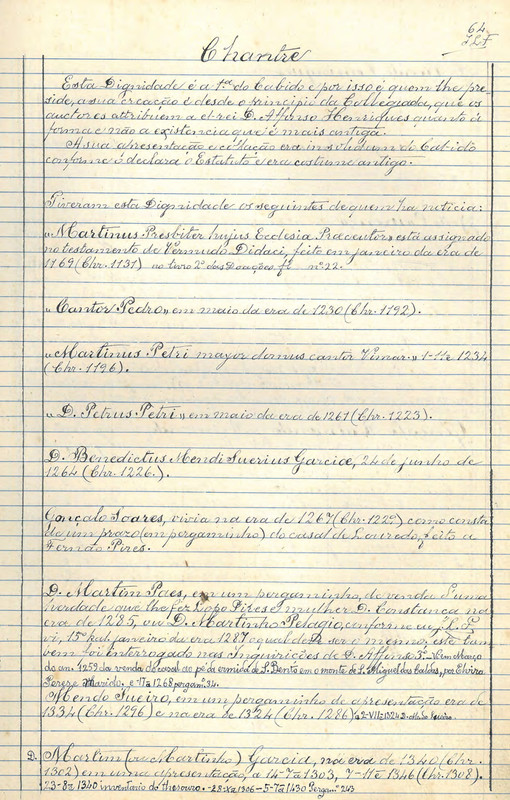 64
J.L.F.
Chantre
Esta Dignidade é a 1ª do Cabido e por isso é quem lhe pre-
side, a sua creação é desde o principio da Collegiada, que os
auctores attribuem a el-rei D. Affonso Henriques quanto á
forma e não a existencia que é mais antiga.
A sua apresentação e collação era in solidum do Cabido
conforme o declara o Estatuto e era costume antigo.
Tiveram esta Dignidade os seguintes de quem ha noticia:
"Martinus Presbiter hujus Ecclesia Precentor" está assignado
no testamento de Vermudo Didaci, feito em janeiro da era de
1169 (Chr. 1131) no livro 2º das Doações fl nº 22.
"Cantor Pedro" em maio da era de 1230 (Chr. 1192).
"Martinus Petri mayor domus cantor Vimar." 1-11º 1234
(Chr. 1196).
"D. Petrus Petri" em maio da era de 1261 (Chr. 1223).
D. Benedictus Mendi Suerius Garciæ, 24 de junho de
1264 (Chr. 1226.).
Gonçalo Soares, vivia na era de 1267 (Chr. 1229) como consta
de um prazo (em pergaminho) do casal de Louredo, feito a
Fernão Pires.
D. Martim Paes, em um pergaminho, de venda d'uma
herdade que lhe fez Lopo Pires e mulher D. Constança na
era de 1285, ou D. Martinho Pelagio, conforme au J. L. F.
vi, 15 kal. janeiro da era 1287 o qual de ser o mesmo, Este tam
bem foi interrogado nas Inquirições de D. Affonso 3º. Março
do an. 1259 da venda do casal ao pé da ermida de S. Bento em o monte de S. Miguel das Caldas, por Elvira
Perez e marido. e 17 1268 pergam. 34.
Mendo Sueiro, em um pergaminho de apresentação era de
1334 (Chr. 1296) e na era de 1324 (Chr. 1286) a 2-VII-1324
D. Martim (ou Martinho) Garcia, na era de 1340 (Chr.
1302) em uma apresentação, a 14-7º 1303, 7-11º 1346 (Chr. 1308).
23-8º 1340 inventario do thesouro. -28-X-1306-5-7º 1430 Pergam. 243